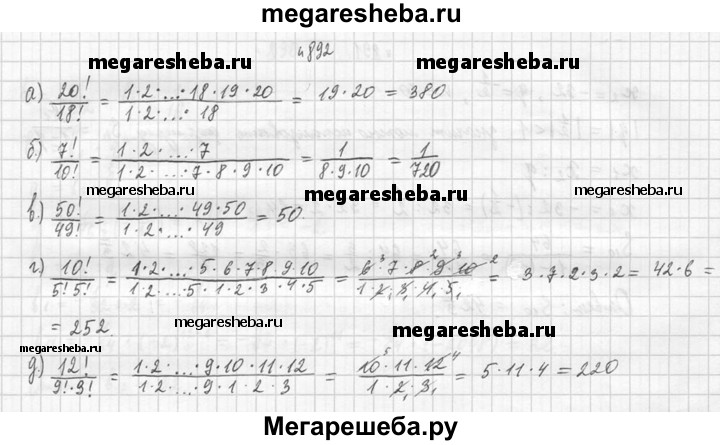 megaresheba.ru
№892
megaresheba.ru megaresheba.ru
а) 20!/18! = 1·2·...·18·19·20 / 1·2·...·18 = 19·20 = 380
б) 7!/10! = 1·2·...·7 / 1·2·...·7·8·9·10 = 1/8·9·10 = 1/720
megaresheba.ru megaresheba.ru megaresheba.ru
в) 50!/49! = 1·2·...·49·50 / 1·2·...·49 = 50
г) 10!/5!5! = 1·2·...·5·6·7·8·9·10 / 1·2·...·5·1·2·3·4·5 = 6³·7·8²·9³·10² / 1·2·3·4·5 = 3·7·2·3·2 = 42·6 =
= 252
megaresheba.ru megaresheba.ru
megaresheba.ru
д) 12!/9!·3! = 1·2·...·9·10·11·12 / 1·2·...·9·1·2·3 = 10⁵·11·12⁴ / 1·2·3 = 5·11·4 = 220
Мегарешеба.ру